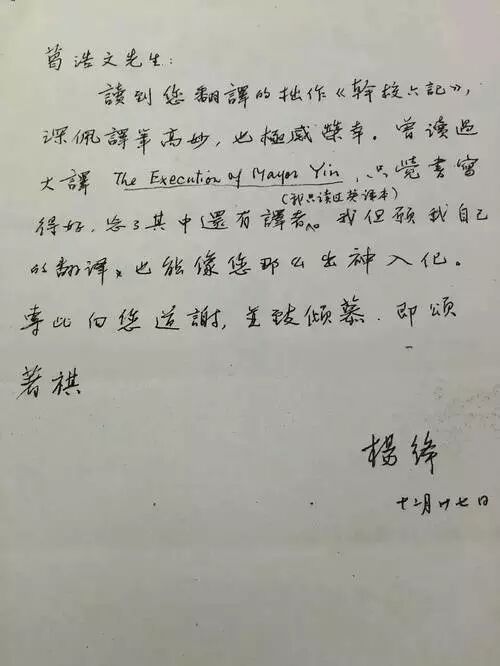 葛浩文先生：
讀到您翻譯的拙作《幹校六記》，
深佩譯筆高妙，也極感榮幸。曾讀過
大譯 The Execution of Mayor Yin，只覺書寫
（我只读过英译本）
得好，忘了其中還有譯者。我但願我自己
的翻譯，也能像您那么出神入化。
專此向您道謝，並致傾慕。即頌
著祺
楊絳
十二月廿七日